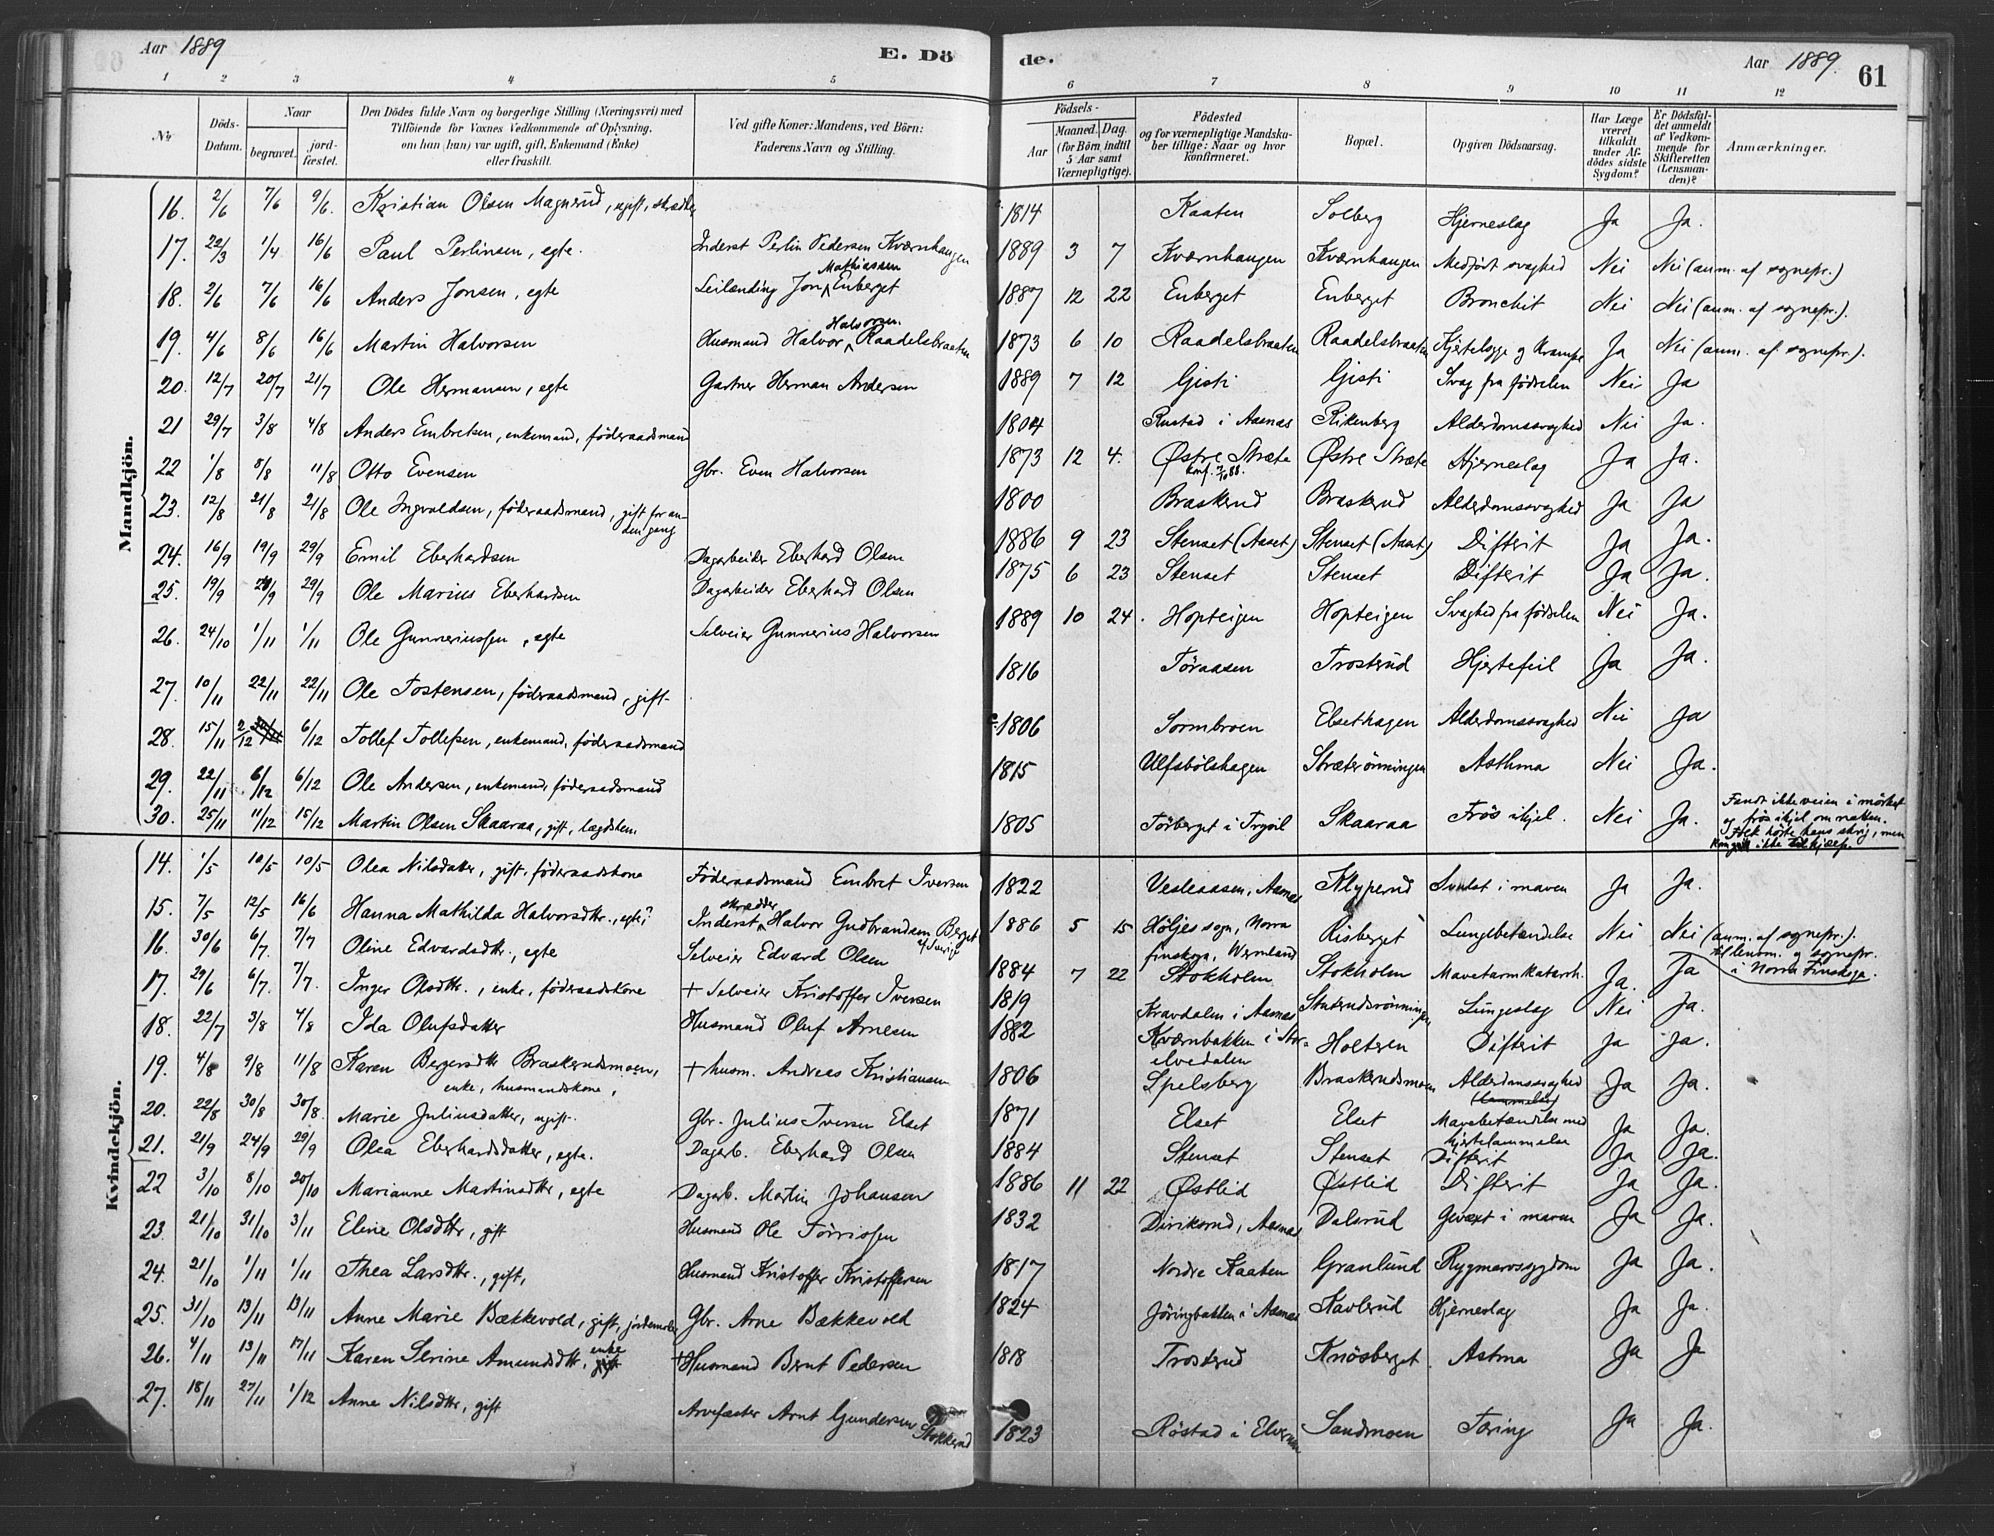 Aar 1889 E. Dö de. Aar 1889. 61
1 2 3 4 5 6 7 8 9 10 11 12
No Döds-Datum. Naar begravet. jordfæstet. Den Dödes fulde Navn og borgerlige Stilling (Næringsvei) med Tilföiende for Voxnes Vedkommende af Oplysning, om han (hun) var ugift, gift, Enkemand (Enke) eller fraskilt. Ved gifte Koner: Mandens, ved Börn: Faderens Navn og Stilling. Födsels- Aar Maaned. Dag. (for Börn indtil 5 Aar samt Værnepligtige). Födested og for værnepligtige Mandskaber tillige: Naar og hvor konfirmeret. Bopæl. Opgiven Dödsaarsag. Har Læge været tilkaldt under Afdödes sidste Sygdom? Er Dödsfaldet anmeldt af Vedkommende for Skifteretten (Lensmanden)? Anmærkninger.
Mandkjön.
16. 2/6 7/6 9/6. Kristian Olsen Magnerud, ugift, skrædder 1814 Kaaten Solberg Hjerneslag Ja Ja.
17. 22/3 1/4 16/6 Paul Perlinsen, egte. Inderst Perlin Pedersen Kværnhaugen 1889 3 7 Kværnhaugen Kværnhaugen Medfødt svaghed Nei Nei (anm. af sognepr.).
18. 2/6 7/6 16/6 Anders Jonsen, egte Leilænding Jon Mathiassen Enberget 1887 12 22 Enberget Enberget Bronchit Nei Nei (anm. af sognepr.).
19. 4/6 8/6 16/6 Martin Halvorsen Husmand Halvor Halvorsen Raadelsbraaten 1873 6 10 Raadelsbraaten Raadelsbraaten Kjertelsyge og Krampe Ja Nei (anm. af sognepr.).
20. 12/7 20/7 21/7 Ole Hermansen, egte Gartner Herman Andersen 1889 7 12 Gisti Gisti Svag fra födselen Nei Ja
21 29/7 3/8 4/8 Anders Embretsen, enkemand, föderaadsmand 1804 Rustad i Aasnas Rikenberg Alderdomssvaghed Nei Ja.
22 1/8 8/8 11/8 Otto Evensen Gbr. Even Halvorsen 1873 12 4. Østre Stræte Østre Stræte Hjerneslag Ja Ja.
23. 12/8 21/8 21/8 Ole Ingvaldsen, föderaadsmand, gift for anden gang 1800 Braskerud Braskerud Alderdomssvaghed Ja Ja
24. 16/9 19/9 29/9 Emil Eberhardsen Dagarbeider Eberhard Olsen 1886 9 23 Stenset (Aaset) Stenset (Aaset) Difterit Ja Ja.
25. 19/9 29/9 Ole Marius Eberhardsen Dagarbeider Eberhard Olsen 1875 6 23 Stenset Stenset Difterit Ja Ja.
26. 24/10 1/11 1/11 Ole Gunneriussen, egte Selveier Gunnerius Halvorsen 1889 10 24. Hopteigen Hopteigen Svaghed fra födselen Nei Ja.
27. 10/11 22/11 22/11 Ole Tostensen, föderaadsmand, gift 1816 Töraasen Trosterud Hjertefeil Ja Ja.
28. 15/11 2/12 6/12 Tollef Tollefsen, enkemand, föderaadsmand 1806 Sormbroen Elsethagen Alderdomssvaghed Nei Ja
29. 22/11 6/12 6/12 Ole Andersen, enkemand, föderaadsmand 1815 Ulfsbölshagen Stræterönningen Asthma Nei Ja.
30. 25/11 11/12 15/12 Martin Olsen Skaaraa, gift, lægdslem 1805 Törberget i Trysil Skaaraa Frös ihjel. Nei Ja. Fandt ikke veien i mörket og frös ihjel om natten. Folk hörte hans skrig, men kom ikke til hjælp.
Kvindekjön.
14. 1/5 10/5 10/5 Olea Nilsdatter, gift, föderaadskone Föderaadsmand Embret Iversen 1822 Vesleaasen, Aasnas Klyperud Svulst i maven Ja Ja.
15. 7/5 12/5 16/6 Hanna Mathilda Halvorsdtr., egte? Inderst skrædder Halvor Gudbrandsen Berget af Sverige 1886 5 15 Höljes sogn, Norra finskogn, Wermland Risberget Lungebetændelse Nei Nei (anm. af sognepr.). til lensm. og sognepr. i Norra Finskoga.
16. 30/6 6/7 7/7 Oline Edvardsdtr., egte Selveier Edvard Olsen 1884 7 22 Stokholm Stokholm Mavetarmkatarrh. Ja. Ja
17. 29/6 6/7. 7/7. Inger Olsdtr., enke, föderaadskone + Selveier Kristoffer Iversen 1819 Kravdalen i Aasnas Stuterudsrönningen Lungeslag Nei Ja.
18. 22/7 3/8 4/8 Ida Olufsdatter Husmand Oluf Arnesen 1882 Kværnbakken i Storelvedalen Holteren Difterit Ja Ja.
19. 4/8 9/8 11/8 Karen Bergersdtr Braskerudsmoen, enke, husmandskone, + husm. Andreas Kristiansen 1806 Spelsberg Braskerudsmoen Alderdomssvaghed Ja Ja.
20. 22/8 30/8 30/8. Marie Juliusdatter, ugift. Gbr. Julius Iversen Elset 1871 Elset Elset Mavebetændelse med hjertelammelse Ja Ja.
21. 21/9 24/9 29/9 Olea Eberhardsdatter, egte. Dagarb. Eberhard Olsen 1884 Stenset Stenset Difterit Ja Ja.
22 3/10 8/10 20/10 Marianne Martinsdtr, egte Dagarb. Martin Johansen 1886 11 22 Østlid Østlid Difterit Ja Ja.
23. 21/10 31/10 3/11 Eline Olsdtr, gift Husmand Ole Törrissen 1832 Diriksrud, Aasnas Dalsrud Gevæxt i maven Ja Ja.
24. 21/10 1/11 1/11 Thea Larsdtr., gift, Husmand Kristoffer Kristoffersen 1817 Nordre Kaaten Granlund Rygmarvssygdom Ja Ja.
25. 31/10 13/11 13/11 Anne Marie Bækkevold, gift, jordemoder Gbr. Arne Bækkevold 1824 Jöringbakken i Aasnas Kavlerud Hjerneslag Ja Ja.
26. 4/11 13/11 17/11 Karen Serine Amundsdtr, enke + Husmand Bernt Pedersen 1818 Trosterud Knösberget. Astma Ja Ja
27. 18/11 27/11 1/12 Anne Nilsdtr, gift Arvefæster Arnt Gundersen Stokkerud 1823 Röstad i Elverum Sandmoen Tæring Ja Ja.